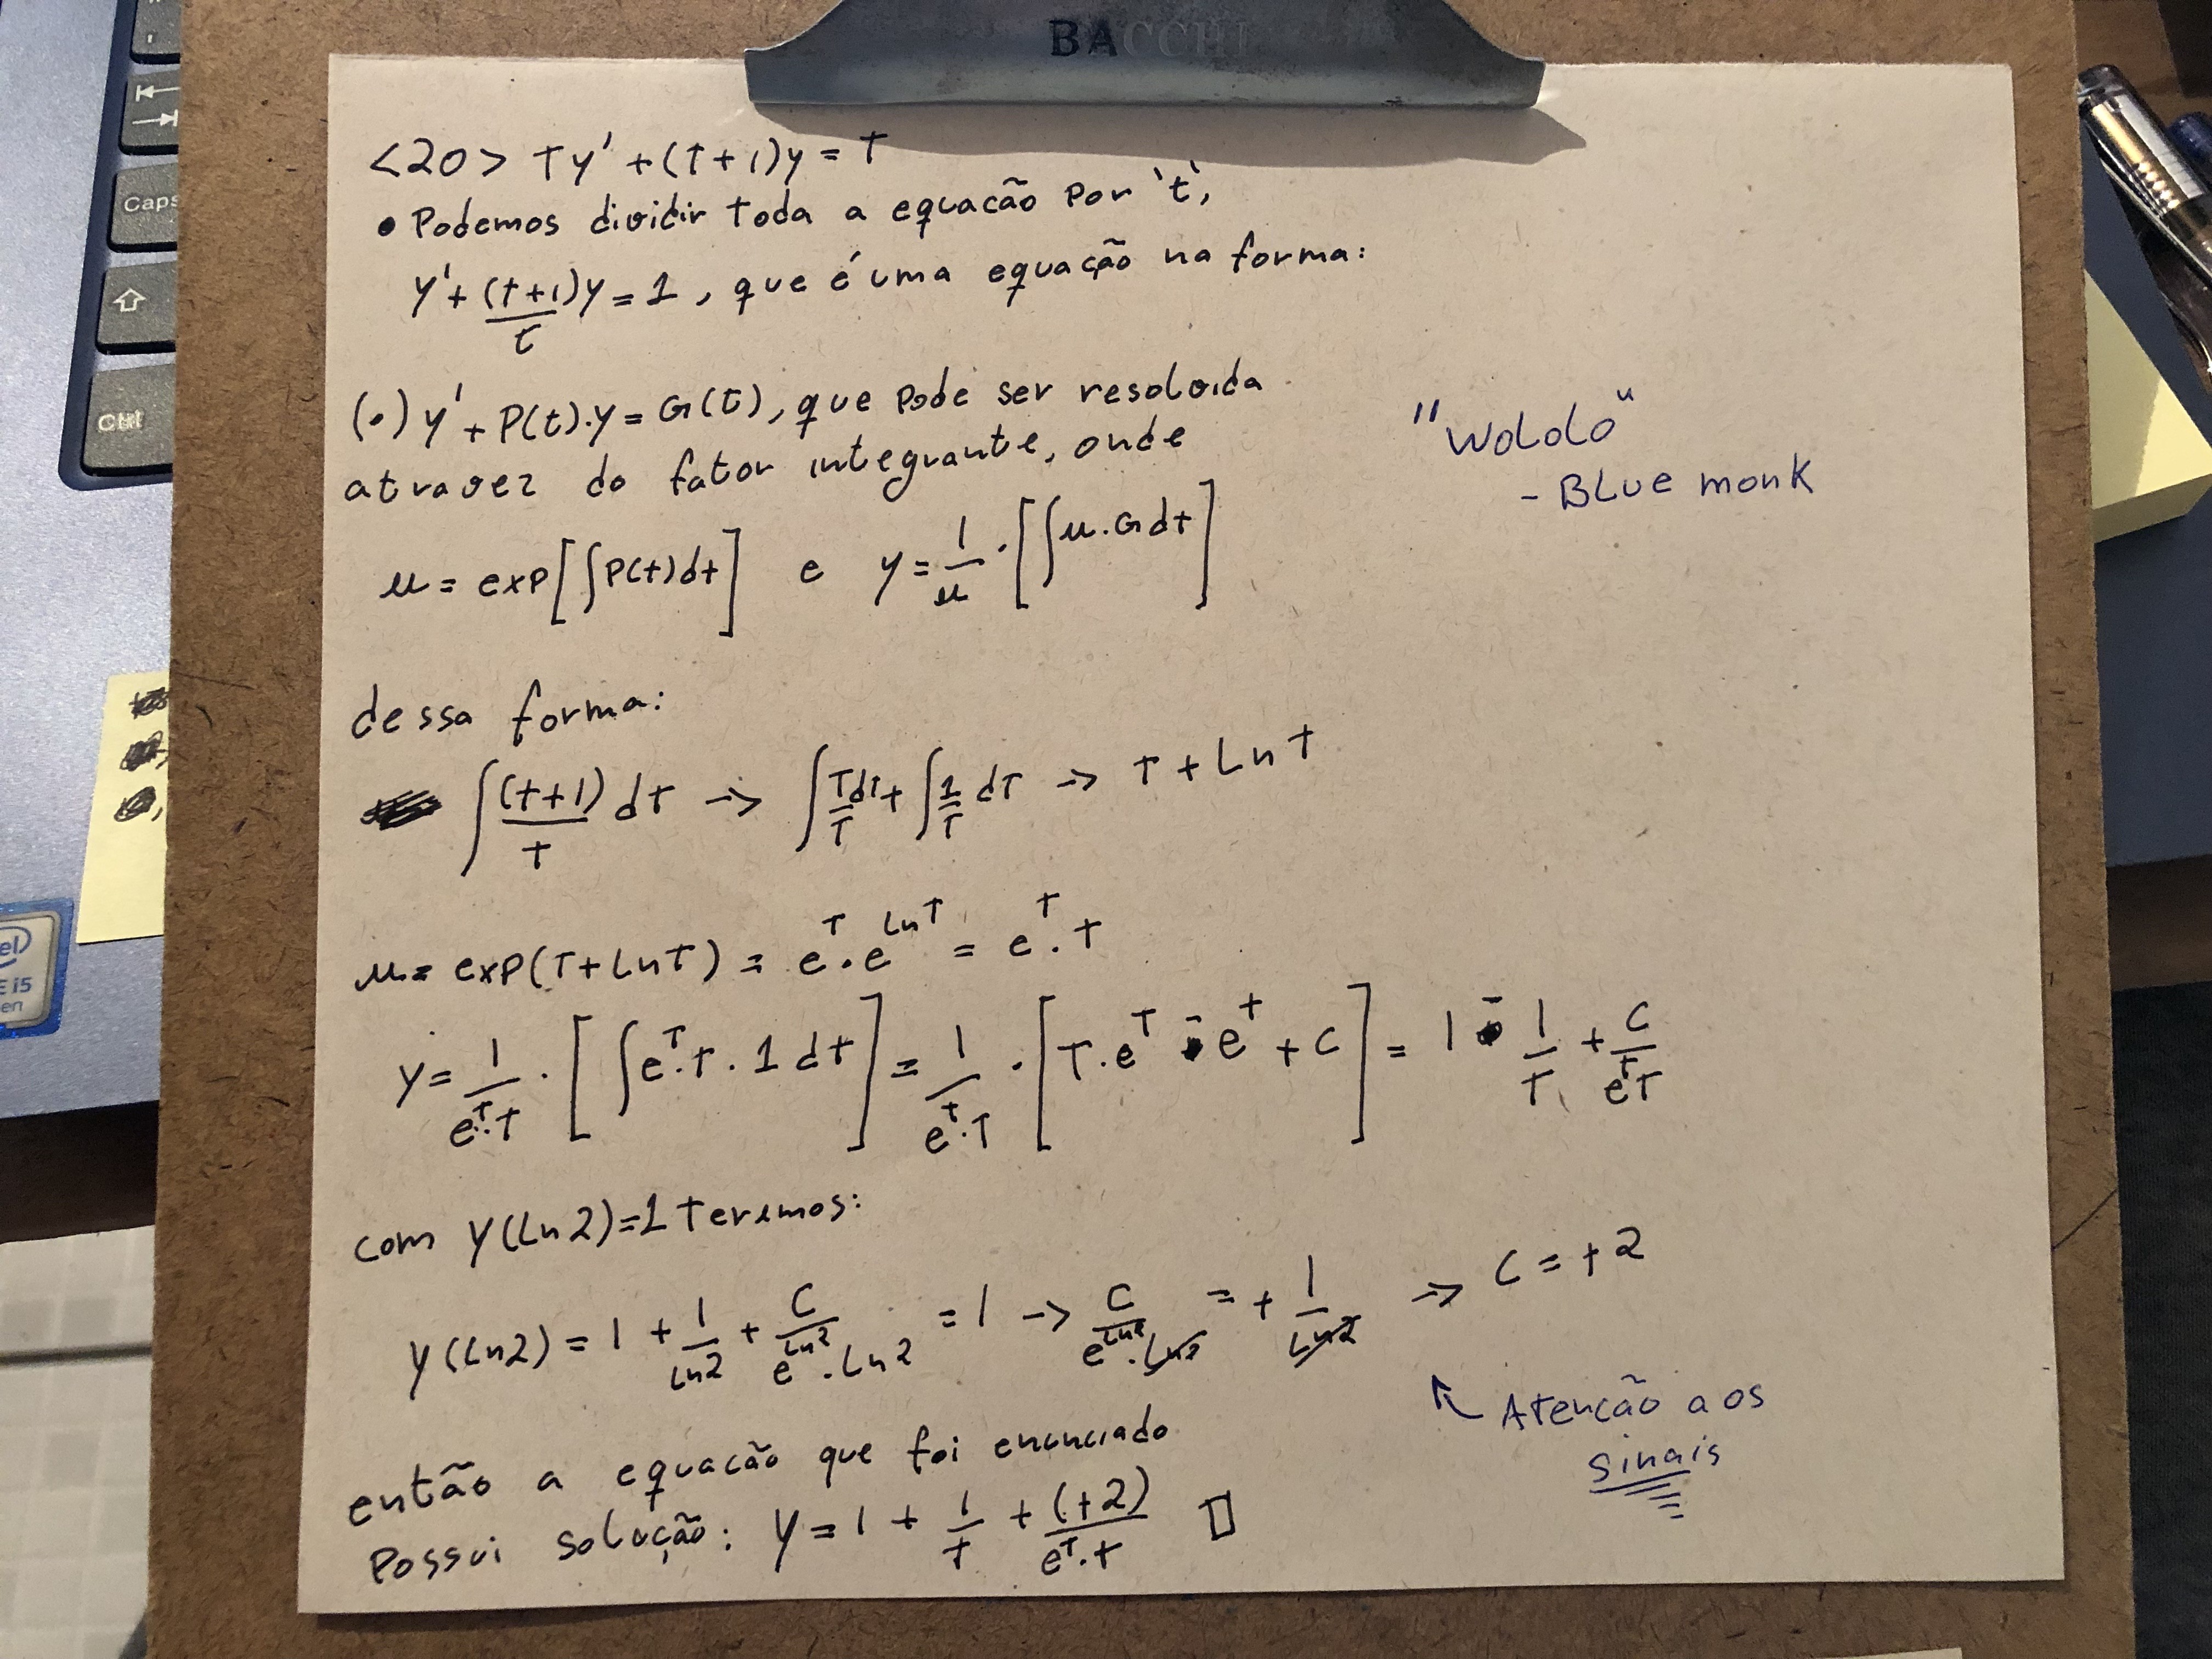 BACCHI
<20> Ty' + (T+1)y = T
• Podemos dividir toda a equacão por 't',
y' + (t+1)/t y = 1, que é uma equação na forma:
(•) y' + P(t).y = G(t), que pode ser resolvida
atravez do fator integrante, onde
μ = exp[∫P(t)dt] e y = 1/μ · [∫μ.G dt]
"Wololo"
- Blue monk
dessa forma:
∫(t+1)/T dT → ∫T/T dT + ∫1/T dT → T + Ln T
μ = exp(T+LnT) = e^T . e^LnT = e^T . T
y = 1/(e^T.T) . [∫e^T.T.1 dt] = 1/(e^T.T) . [T.e^T - e^T + C] = 1 - 1/T + C/(e^T T)
com y(Ln2)=1 teremos:
y(Ln2) = 1 + 1/Ln2 + C/(e^Ln2 . Ln2) = 1 → C/(e^Ln2 . Ln2) = + 1/Ln2 → C = +2
Atencão aos
sinais
então a equacão que foi enunciado
possui solução: y = 1 + 1/T + (+2)/(e^T.T) □
Caps
Ctrl
intel
E i5
en